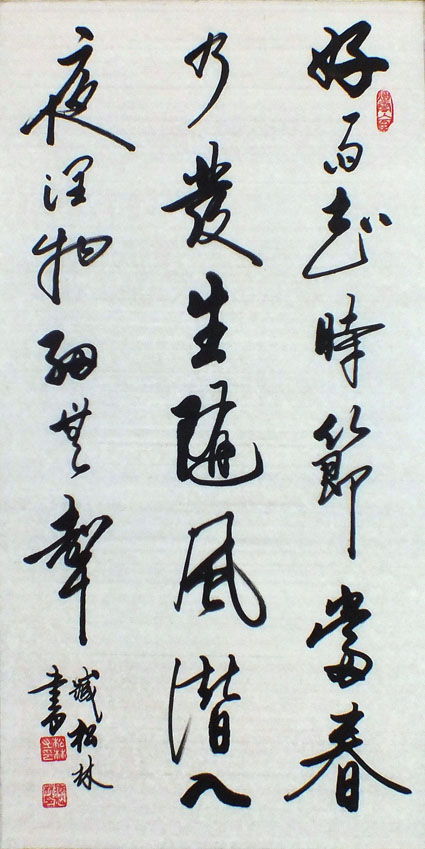 好雨知時節當春
乃發生隨風潛入
夜潤物細無聲
臧松林
書